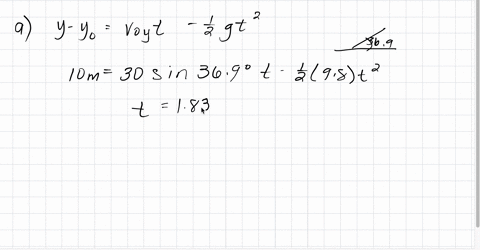 a) y-y₀ = v₀yt - ½gt²
36.9
10m = 30 sin 36.9° t - ½(9.8)t²
t = 1.83